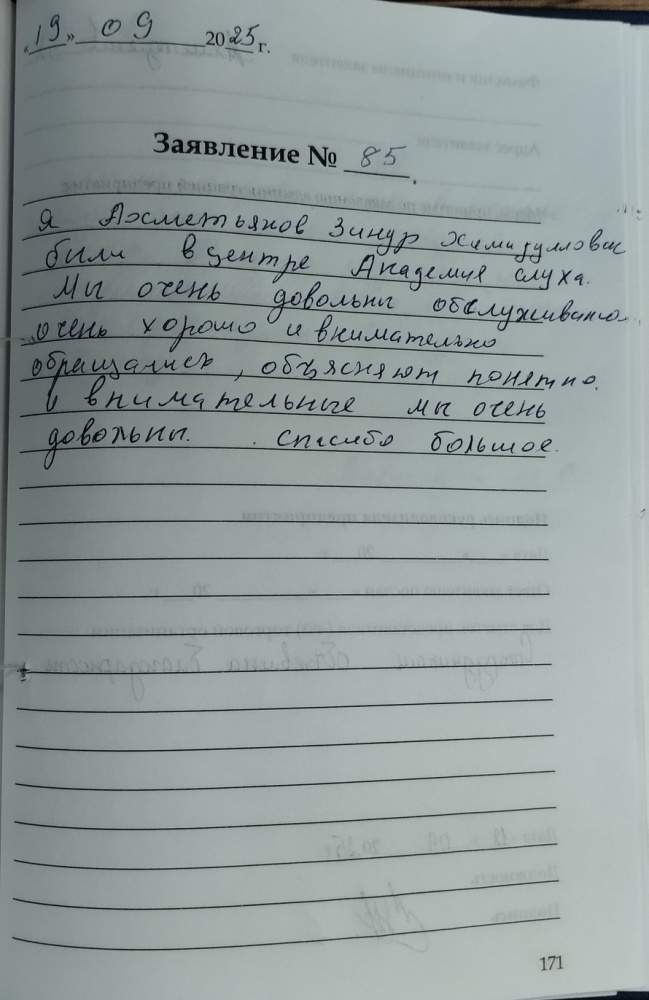 «19» 09 2025 г.
Заявление № 85.
Я Ахметьянов Зинур
были в центре Академия слуха.
Мы очень довольны
очень хорошо и внимательно
обращались, объясняют понятно.
и внимательные мы очень
довольны. Спасибо большое.
171